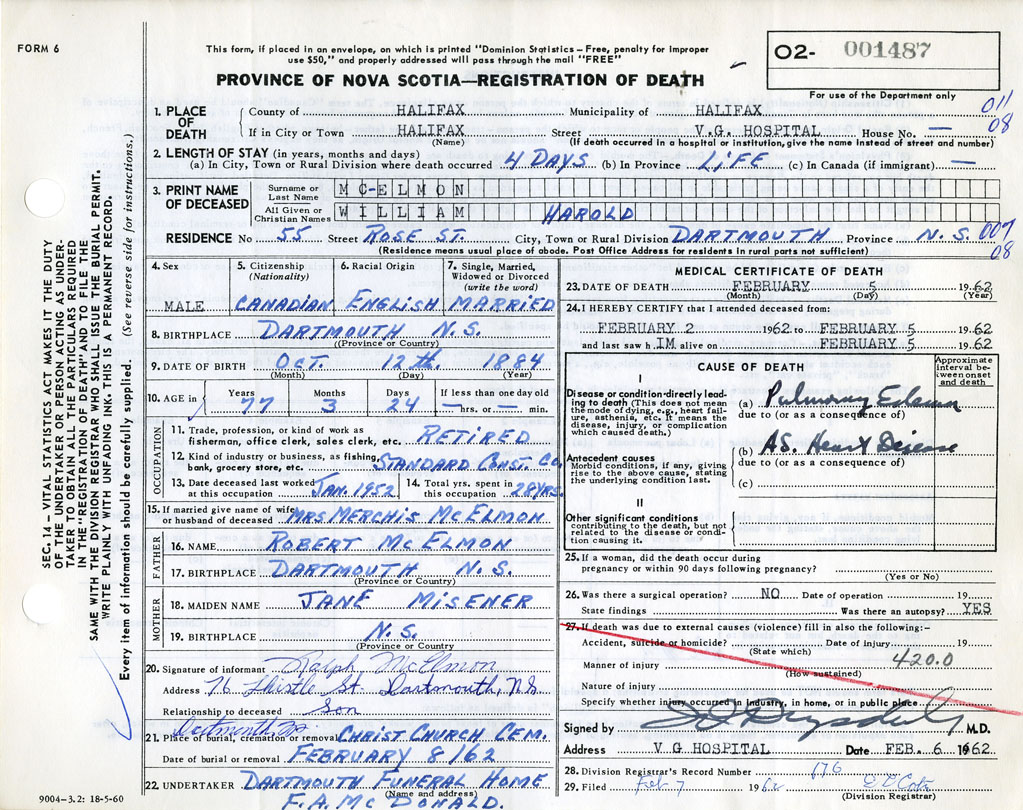 FORM 6
This form, if placed in an envelope, on which is printed "Dominion Statistics – Free, penalty for improper
use $50," and properly addressed will pass through the mail "FREE"
PROVINCE OF NOVA SCOTIA—REGISTRATION OF DEATH
O2- 001487
For use of the Department only
011
08
1. PLACE OF DEATH
County of HALIFAX Municipality of HALIFAX
If in City or Town HALIFAX Street V.G. HOSPITAL House No. —
(Name) (If death occurred in a hospital or institution, give the name instead of street and number)
2. LENGTH OF STAY (in years, months and days)
(a) In City, Town or Rural Division where death occurred 4 DAYS (b) In Province LIFE (c) In Canada (if immigrant) —
3. PRINT NAME OF DECEASED
Surname or Last Name MC-ELMON
All Given or Christian Names WILLIAM HAROLD
RESIDENCE No 55 Street ROSE ST. City, Town or Rural Division DARTMOUTH Province N.S. 007
08
(Residence means usual place of abode. Post Office Address for residents in rural parts not sufficient)
4. Sex MALE
5. Citizenship (Nationality) CANADIAN
6. Racial Origin ENGLISH
7. Single, Married, Widowed or Divorced (write the word) MARRIED
8. BIRTHPLACE DARTMOUTH N.S.
(Province or Country)
9. DATE OF BIRTH OCT. 12th. 1884
(Month) (Day) (Year)
10. AGE in Years 77 Months 3 Days 24 If less than one day old — hrs. or — min.
OCCUPATION
11. Trade, profession, or kind of work as
fisherman, office clerk, sales clerk, etc. RETIRED
12. Kind of industry or business, as fishing,
bank, grocery store, etc. STANDARD CONST. CO.
13. Date deceased last worked at this occupation JAN. 1952
14. Total yrs. spent in this occupation 28 YRS.
15. If married give name of wife
or husband of deceased MRS MERCHIS MC ELMON
FATHER
16. NAME ROBERT MC ELMON
17. BIRTHPLACE DARTMOUTH N.S.
(Province or Country)
MOTHER
18. MAIDEN NAME JANE MISENER
19. BIRTHPLACE N.S.
(Province or Country)
20. Signature of informant Ralph McElmon
Address 76 Thistle St. Dartmouth, NS
Relationship to deceased Son
Dartmouth NS
21. Place of burial, cremation or removal CHRIST CHURCH CEM.
Date of burial or removal FEBRUARY 8/62
22. UNDERTAKER DARTMOUTH FUNERAL HOME
(Name and address)
F.A. MC DONALD.
MEDICAL CERTIFICATE OF DEATH
23. DATE OF DEATH FEBRUARY 5 1962
(Month) (Day) (Year)
24. I HEREBY CERTIFY that I attended deceased from:
FEBRUARY 2 1962 to FEBRUARY 5 1962
and last saw h IM alive on FEBRUARY 5 1962
CAUSE OF DEATH
Approximate interval between onset and death
I
Disease or condition directly leading to death (This does not mean the mode of dying, e.g., heart failure, asthenia, etc. It means the disease, injury, or complication which caused death.)
(a) Pulmonary Edema
due to (or as a consequence of)
Antecedent causes
Morbid conditions, if any, giving rise to the above cause, stating the underlying condition last.
(b) AS. Heart Disease
due to (or as a consequence of)
(c)
II
Other significant conditions
contributing to the death, but not related to the disease or condition causing it.
25. If a woman, did the death occur during
pregnancy or within 90 days following pregnancy?
(Yes or No)
26. Was there a surgical operation? NO Date of operation 19
State findings Was there an autopsy? YES
27. If death was due to external causes (violence) fill in also the following:–
Accident, suicide or homicide? Date of injury 19
(State which)
Manner of injury 420.0
(How sustained)
Nature of injury
Specify whether injury occurred in industry, in home, or in public place
Signed by M.D.
Address V G HOSPITAL Date FEB. 6 1962
28. Division Registrar's Record Number 676
29. Filed Feb 7 1962
(Division Registrar)
SEC. 14 – VITAL STATISTICS ACT MAKES IT THE DUTY
OF THE UNDERTAKER OR PERSON ACTING AS UNDERTAKER TO OBTAIN ALL THE PARTICULARS REQUIRED
IN THE "REGISTRATION OF DEATH" AND TO FILE THE
SAME WITH THE DIVISION REGISTRAR WHO SHALL ISSUE THE BURIAL PERMIT.
WRITE PLAINLY WITH UNFADING INK. THIS IS A PERMANENT RECORD.
Every item of information should be carefully supplied. (See reverse side for instructions,)
9004–3.2: 18-5-60